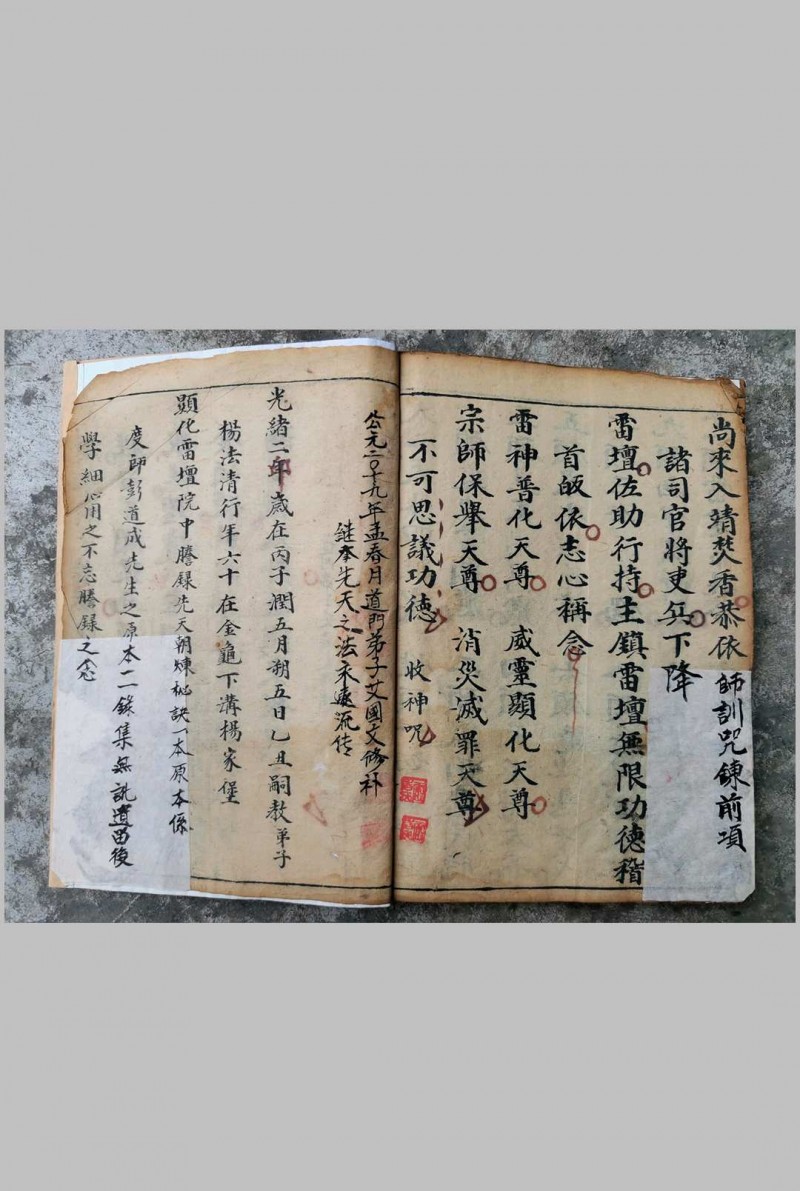 尚來入靖焚香恭依師訓咒鍊前項
諸司官將吏兵下降
雷壇佐助行持主鎮雷壇無限功德稽
首皈依志心稱念
雷神普化天尊 威靈顯化天尊
宗師保舉天尊 消災滅罪天尊
不可思議功德 收神呪
公元二0十九年孟春月道門弟子艾國文修补
继奉先天之法永遠流传
光緒二年歲在丙子潤五月朔五日乙丑嗣教弟子
楊法清行年六十在金龜下溝楊家堡
顯化雷壇院中謄錄先天朝煉秘訣一本原本係
度師彭道成先生之原本二錄集無訛遺留後
學細心用之不忘謄錄之念